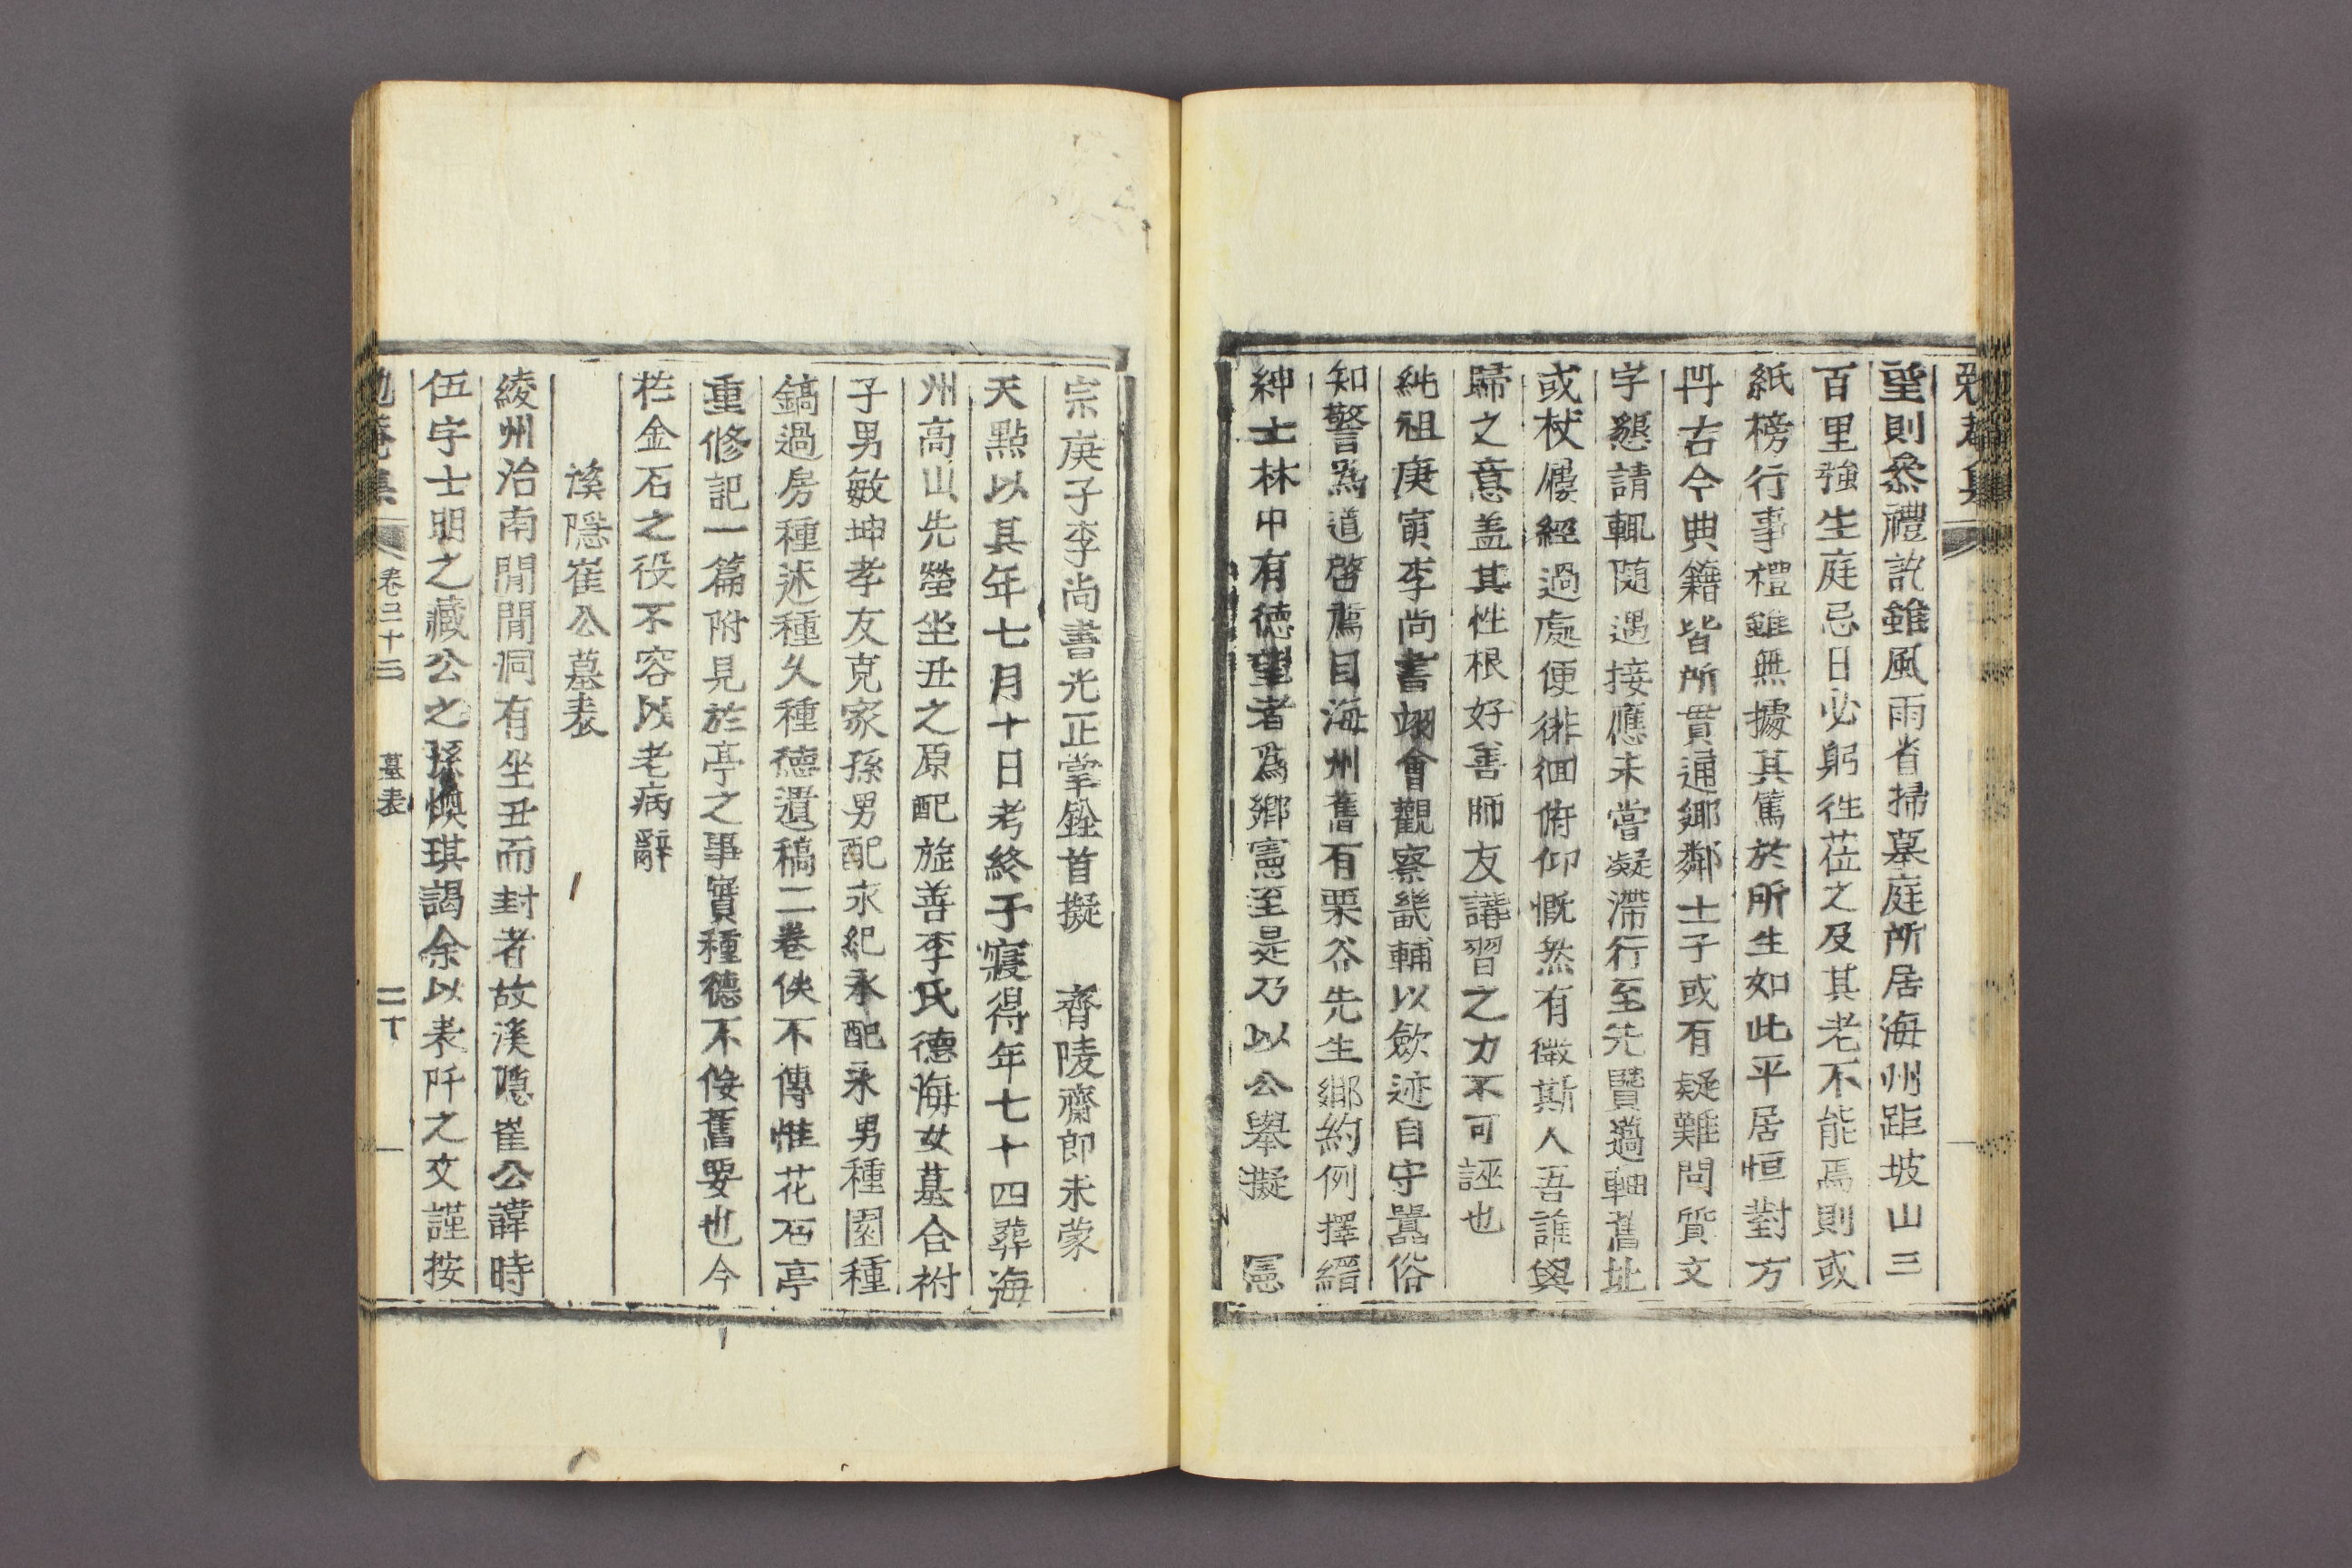 望則叅禮訖雖風雨省掃墓庭所居海州距坡山三
百里强生庭忌日必躬徃莅之及其老不能焉則或
紙榜行事禮雖無據其篤於所生如此平居恒對方
冊古今典籍皆所貫通鄕鄰士子或有疑難問質文
字懇請輒隨遇接應未嘗凝滯行至先賢薖軸舊址
或杖屨經過處便徘徊俯仰慨然有微斯人吾誰與
歸之意盖其性根好善師友講習之力不可誣也
純祖庚寅李尚書翊會觀察畿輔以歛迹自守嚚俗
知警爲道啓薦目海州舊有栗谷先生鄕約例擇縉
紳士林中有德望者爲鄕憲至是乃以公舉擬 憲
宗庚子李尚書光正掌銓首擬 齊陵齋郎未蒙
天點以其年七月十日考終于寢得年七十四葬海
州高山先塋坐丑之原配旌善李氏德海女墓合祔
子男敏坤孝友克家孫男配永紀永配永男種園種
鎬過房種述種久種德遺稿二卷佚不傳惟花石亭
重修記一篇附見於亭之事實種德不佞舊要也今
茬金石之役不容以老病辭
溪隱崔公墓表
綾州治南閒閒洞有坐丑而封者故溪隱崔公諱時
伍字士明之藏公之孫煥琪謁余以表阡之文謹按
勉菴集 卷二十三 墓表 二十